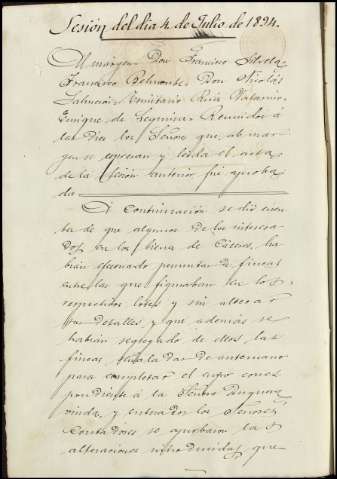 Sesión del día 4 de Julio de 1894.
Al margen Don Francisco Silvela
Francisco Belmonte, Don Nicolás
Salmerón Amilario Ruiz
Enrique de Reunidos á
las diez los Señores que al mar-
gen se expresan y leída el acta
de la sesión anterior fué aproba
da
A continuación se dió cuen
ta de que algunos de los interesa-
dos en los bienes de ha-
bían efectuado permutas de fincas
entre las que figuraban en los
respectivos lotes y sin alterar
sus detalles, y que además se
habían segregado de ellos, las
fincas de antemano
para completar el cupo corres
pondiente á la Señora
viuda, y enterados los Señores
Contadores se aprobaron las
alteraciones introducidas, que